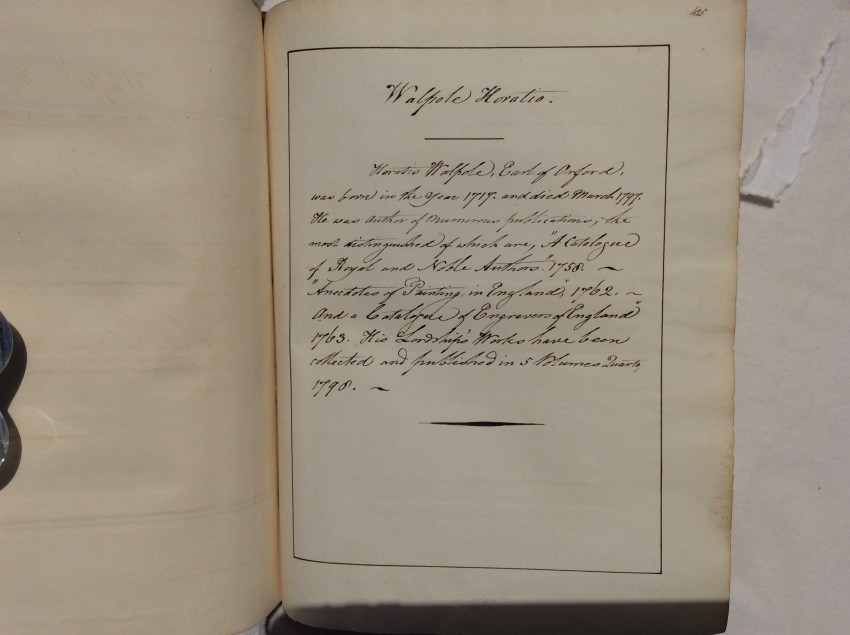 Walpole Horatio.
Horatio Walpole, Earl of Orford,
was born in the Year 1717. and died March 1797.
He was Author of Numerous publications; the
most distinguished of which are, "A Catalogue
of Royal and Noble Authors". 1758. ~
"Anecdotes of Painting in England", 1762. ~
And a Catalogue of Engravers of England"
1763. His Lordship's Works have been
collected and published in 5 Volumes Quarto,
1798. ~